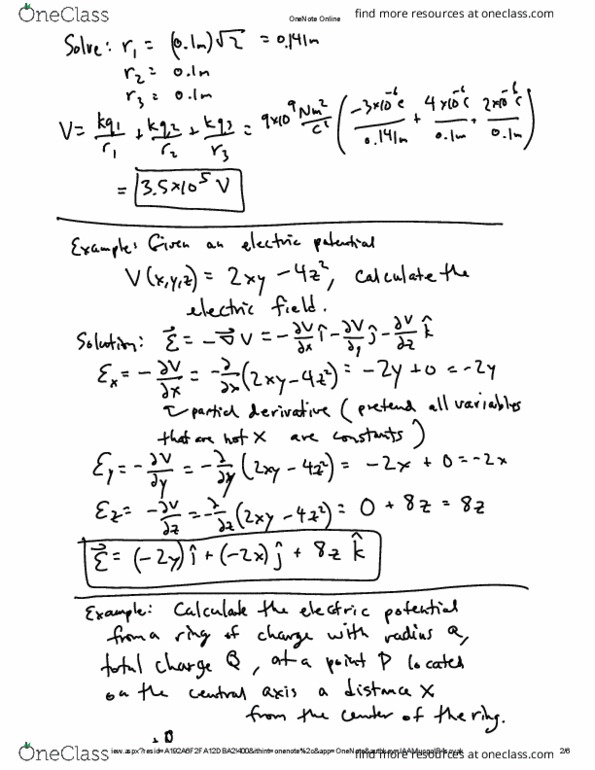 OneClass
OneNote Online
find more resources at oneclass.com
find more resources at oneclass.com
Solve: r₁ = (0.1m)√2 = 0.141m
r₂ = 0.1m
r₃ = 0.1m
V = kq₁/r₁ + kq₂/r₂ + kq₃/r₃ = 9x10⁹ Nm²/C² (-3x10⁻⁶C/0.141m + 4x10⁻⁶C/0.1m + 2x10⁻⁶C/0.1m)
= 3.5x10⁵ V
Example: Given an electric potential
V(x,y,z) = 2xy - 4z², calculate the
electric field.
Solution: E⃗ = -∇⃗V = -∂V/∂x î - ∂V/∂y ĵ - ∂V/∂z k̂
Eₓ = -∂V/∂x = -∂/∂x (2xy - 4z²) = -2y + 0 = -2y
partial derivative (pretend all variables
that are not x are constants)
E_y = -∂V/∂y = -∂/∂y (2xy - 4z²) = -2x + 0 = -2x
E_z = -∂V/∂z = -∂/∂z (2xy - 4z²) = 0 + 8z = 8z
E⃗ = (-2y) î + (-2x) ĵ + 8z k̂
Example: Calculate the electric potential
from a ring of charge with radius a,
total charge Q, at a point P located
on the central axis a distance x
from the center of the ring.
2/6
OneClass
find more resources at oneclass.com
find more resources at oneclass.com